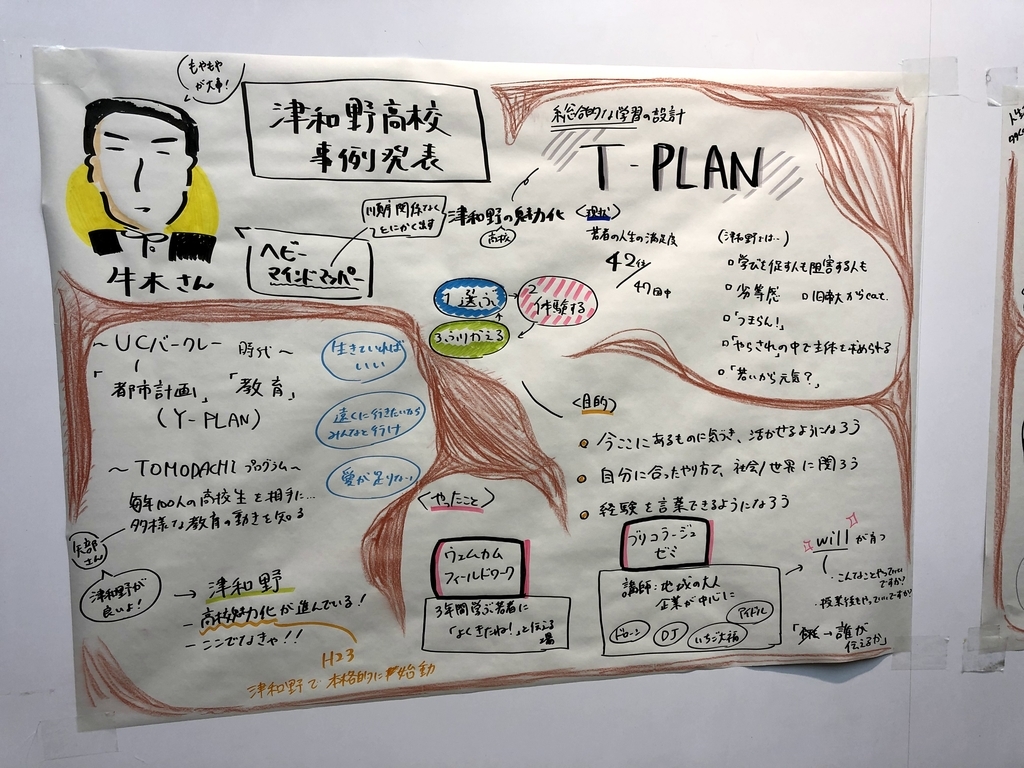 もやもや
が大事！
津和野高校
事例発表
牛木さん
ヘビー
マインドマッパー
関係なく
とにかく出す
総合的な学習の設計
T-PLAN
津和野の魅力化
高校
1 選ぶ
2
体験する
3 ふりかえる
〈現状〉
若者の人生の満足度
42位/
47回中
(津和野では…)
学びを促す人も阻害する人も
劣等感
「つまらん！」
「やらされ」の中で主体を求められる
「若いから元気？」
〜UCバークレー 時代〜
「都市計画」「教育」
(Y-PLAN)
〜TOMODACHI プログラム〜
毎年100人の高校生を相手に…
多様な教育の動きを知る
生きていれば
いい
遠くに行きたいなら
みんなと行け
愛が足りない
矢部
さん
津和野が
良いよ！
→ 津和野
- 高校魅力化が進んでいる！
- ここでなきゃ！！
H23
津和野で本格的に始動
〈目的〉
今ここにあるものに気づき、活かせるようになろう
自分に合ったやり方で、社会/世界に関ろう
経験を言葉できるようになろう
〈やったこと〉
ウェムカム
フィールドワーク
3年間学ぶ若者に
「よくきたね！」と伝える
場
ブリコラージュ
ゼミ
講師：地域の大人
企業が中心に
アイドル
ドローン
DJ
いちご大福
willが育つ
・こんなことやっていい
ですか？
・授業後もやっていいですか
→誰が
伝えるか」